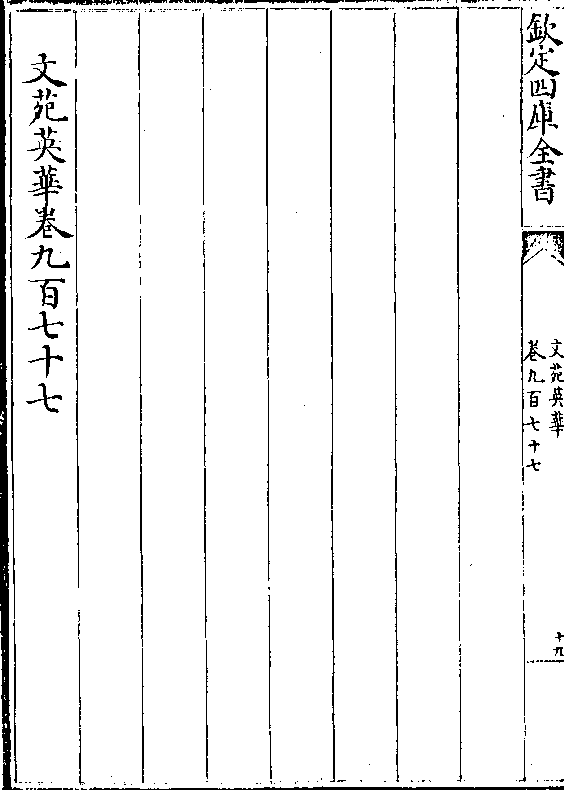 欽定四庫全書
文苑英華
卷九百七十七
十九
文苑英華卷九百七十七